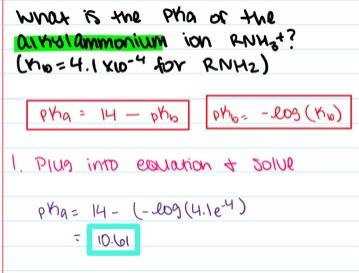 What is the pKa of the
alkylammonium ion RNH₃⁺?
(Kb = 4.1 x10⁻⁴ for RNH₂)
pKa = 14 - pKb
pKb = -log(Kb)
1. Plug into equation & solve
pKa = 14 - (-log(4.1e⁻⁴)
= 10.61